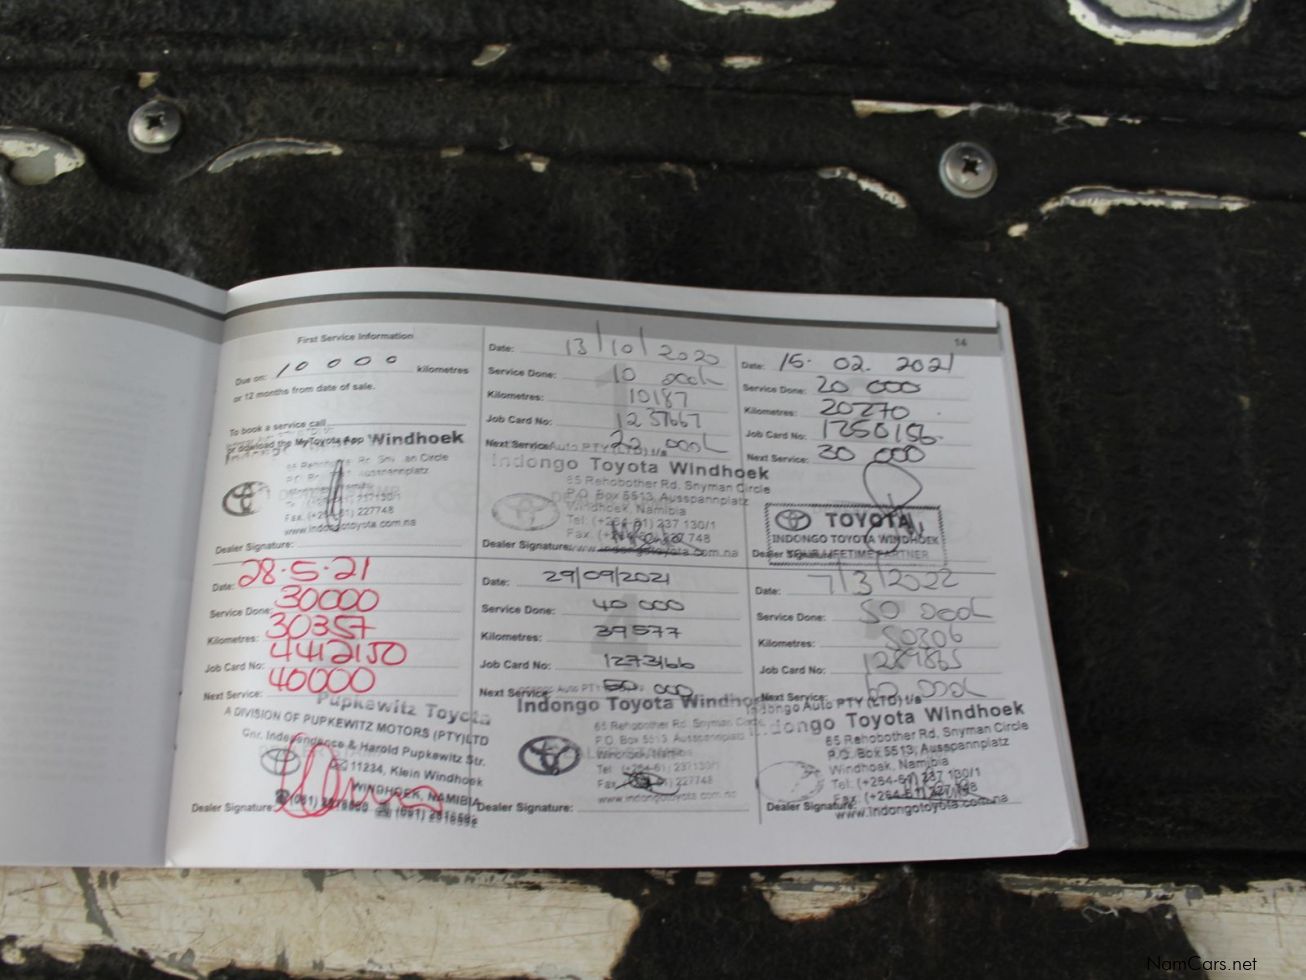 14
First Service Information
Due on: 10 000 kilometres
or 12 months from date of sale.
To book a service call
or download the MyToyota App
Windhoek
Fax. (+264-61) 227748
www.indongotoyota.com.na
Dealer Signature:
Date: 13/10/2020
Service Done: 10 000k
Kilometres: 10187
Job Card No: 1237667
Next Service: 20 000k
Auto PTY (LTD) t/a
Indongo Toyota Windhoek
65 Rehobother Rd. Snyman Circle
P.O. Box 5513, Ausspannplatz
Windhoek, Namibia
Tel: (+264-61) 237 130/1
Fax. (+264-61) 227 748
www.indongotoyota.com.na
Dealer Signature:
Date: 15. 02. 2021
Service Done: 20 000
Kilometres: 20270
Job Card No: 1250156
Next Service: 30 000
TOYOTA
INDONGO TOYOTA WINDHOEK
YOUR LIFETIME PARTNER
Dealer Signature:
Date: 28.5.21
Service Done: 30000
Kilometres: 30357
Job Card No: 4412150
Next Service: 40000
Pupkewitz Toyota
A DIVISION OF PUPKEWITZ MOTORS (PTY)LTD
Cnr. Independence & Harold Pupkewitz Str.
11234, Klein Windhoek
WINDHOEK, NAMIBIA
Dealer Signature:
Date: 29/09/2021
Service Done: 40 000
Kilometres: 39577
Job Card No: 1273166
Next Service: 50 000
Indongo Toyota Windhoek
65 Rehobother Rd. Snyman Circle
P.O. Box 5513, Ausspannplatz
Windhoek, Namibia
Tel: (+264-61) 237130/1
Fax. (+264-61) 227748
www.indongotoyota.com.na
Dealer Signature:
Date: 7/3/2022
Service Done: 50 000k
Kilometres: 50306
Job Card No: 1289865
Next Service: 60 000k
Indongo Auto PTY (LTD) t/a
Indongo Toyota Windhoek
65 Rehobother Rd. Snyman Circle
P.O. Box 5513, Ausspannplatz
Windhoek, Namibia
Tel: (+264-61) 237 130/1
Fax: (+264-61) 227 748
www.indongotoyota.com.na
Dealer Signature:
NamCars.net